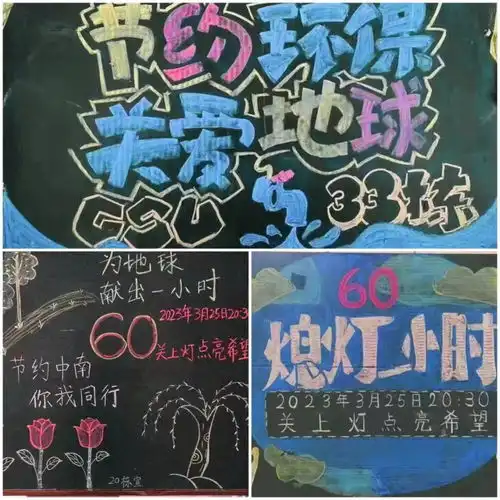 节约环保
关爱地球
CSU 33栋
为地球
献出一小时
2023年3月25日20:30
60 关上灯点亮希望
节约中南
你我同行
20栋宣
60
熄灯一小时
2023年3月25日20:30
关上灯点亮希望